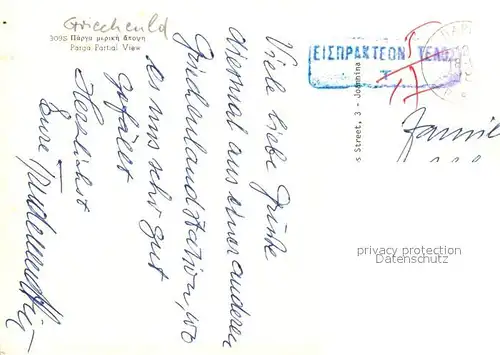 Griechenld
3095 Πάργα μερική ἄποψη
Parga Partial View
Viele liebe Grüße
diesmal aus einer anderen
Griechenlandstation, wo
es uns sehr gut
gefällt
Herzlichst
Eure
ΕΙΣΠΡΑΚΤΕΟΝ ΤΕΛΟΣ
T
s Street, 3 - Joannina
Famil
privacy protection
Datenschutz